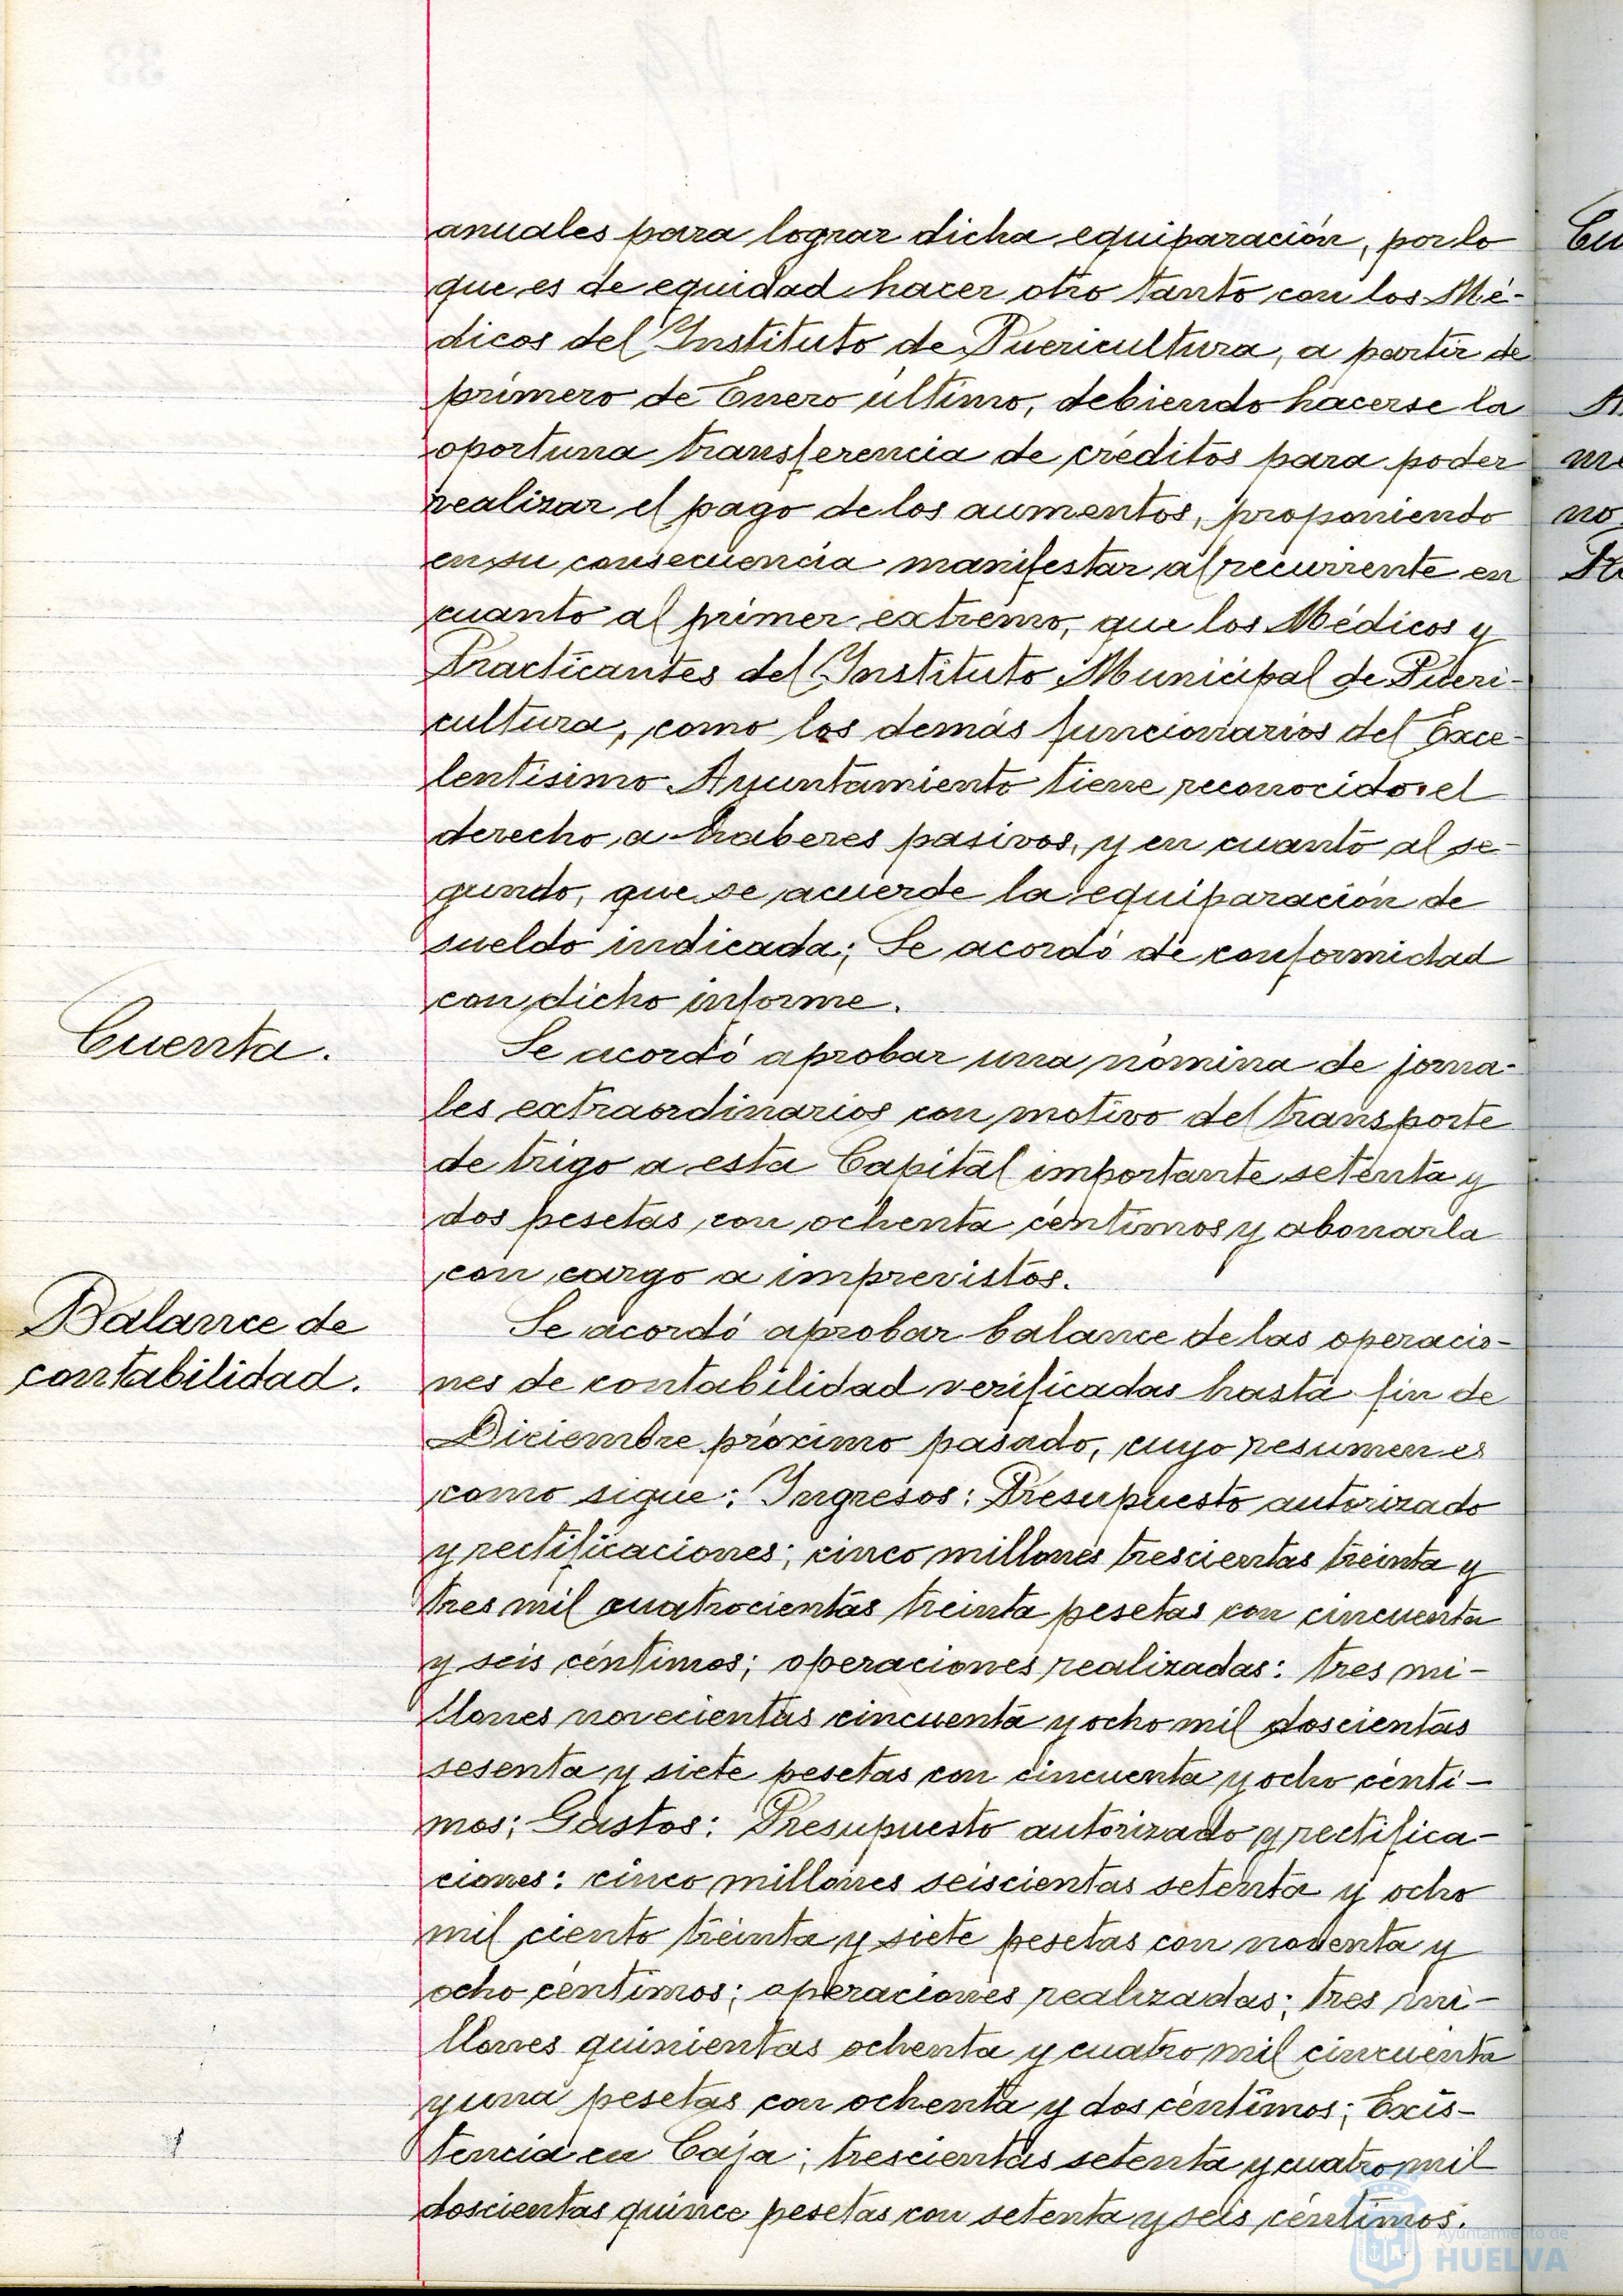 anuales para lograr dicha equiparación, por lo
que es de equidad hacer otro tanto con los Mé-
dicos del Instituto de Puericultura, a partir de
primero de Enero último, debiendo hacerse la
oportuna transferencia de créditos para poder
realizar el pago de los aumentos, proponiendo
en su consecuencia manifestar al recurrente en
cuanto al primer extremo, que los Médicos y
Practicantes del Instituto Municipal de Pueri-
cultura, como los demás funcionarios del Exce-
lentísimo Ayuntamiento tiene reconocido el
derecho a haberes pasivos, y en cuanto al se-
gundo, que se acuerde la equiparación de
sueldo indicada; Se acordó de conformidad
con dicho informe.
Cuenta.
Se acordó aprobar una nómina de jorna-
les extraordinarios con motivo del transporte
de trigo a esta Capital importante setenta y
dos pesetas con ochenta céntimos y abonarla
con cargo a imprevistos.
Balance de
contabilidad.
Se acordó aprobar balance de las operacio-
nes de contabilidad verificadas hasta fin de
Diciembre próximo pasado, cuyo resumen es
como sigue: Ingresos: Presupuesto autorizado
y rectificaciones; cinco millones trescientas treinta y
tres mil cuatrocientas treinta pesetas con cincuenta
y seis céntimos; operaciones realizadas: tres mi-
llones novecientas cincuenta y ocho mil doscientas
sesenta y siete pesetas con cincuenta y ocho cénti-
mos; Gastos: Presupuesto autorizado y rectifica-
ciones: cinco millones seiscientas setenta y ocho
mil ciento treinta y siete pesetas con noventa y
ocho céntimos; operaciones realizadas; tres mi-
llones quinientas ochenta y cuatro mil cincuenta
y una pesetas con ochenta y dos céntimos; Exis-
tencia en Caja; trescientas setenta y cuatro mil
doscientas quince pesetas con setenta y seis céntimos.
Ayuntamiento de
HUELVA